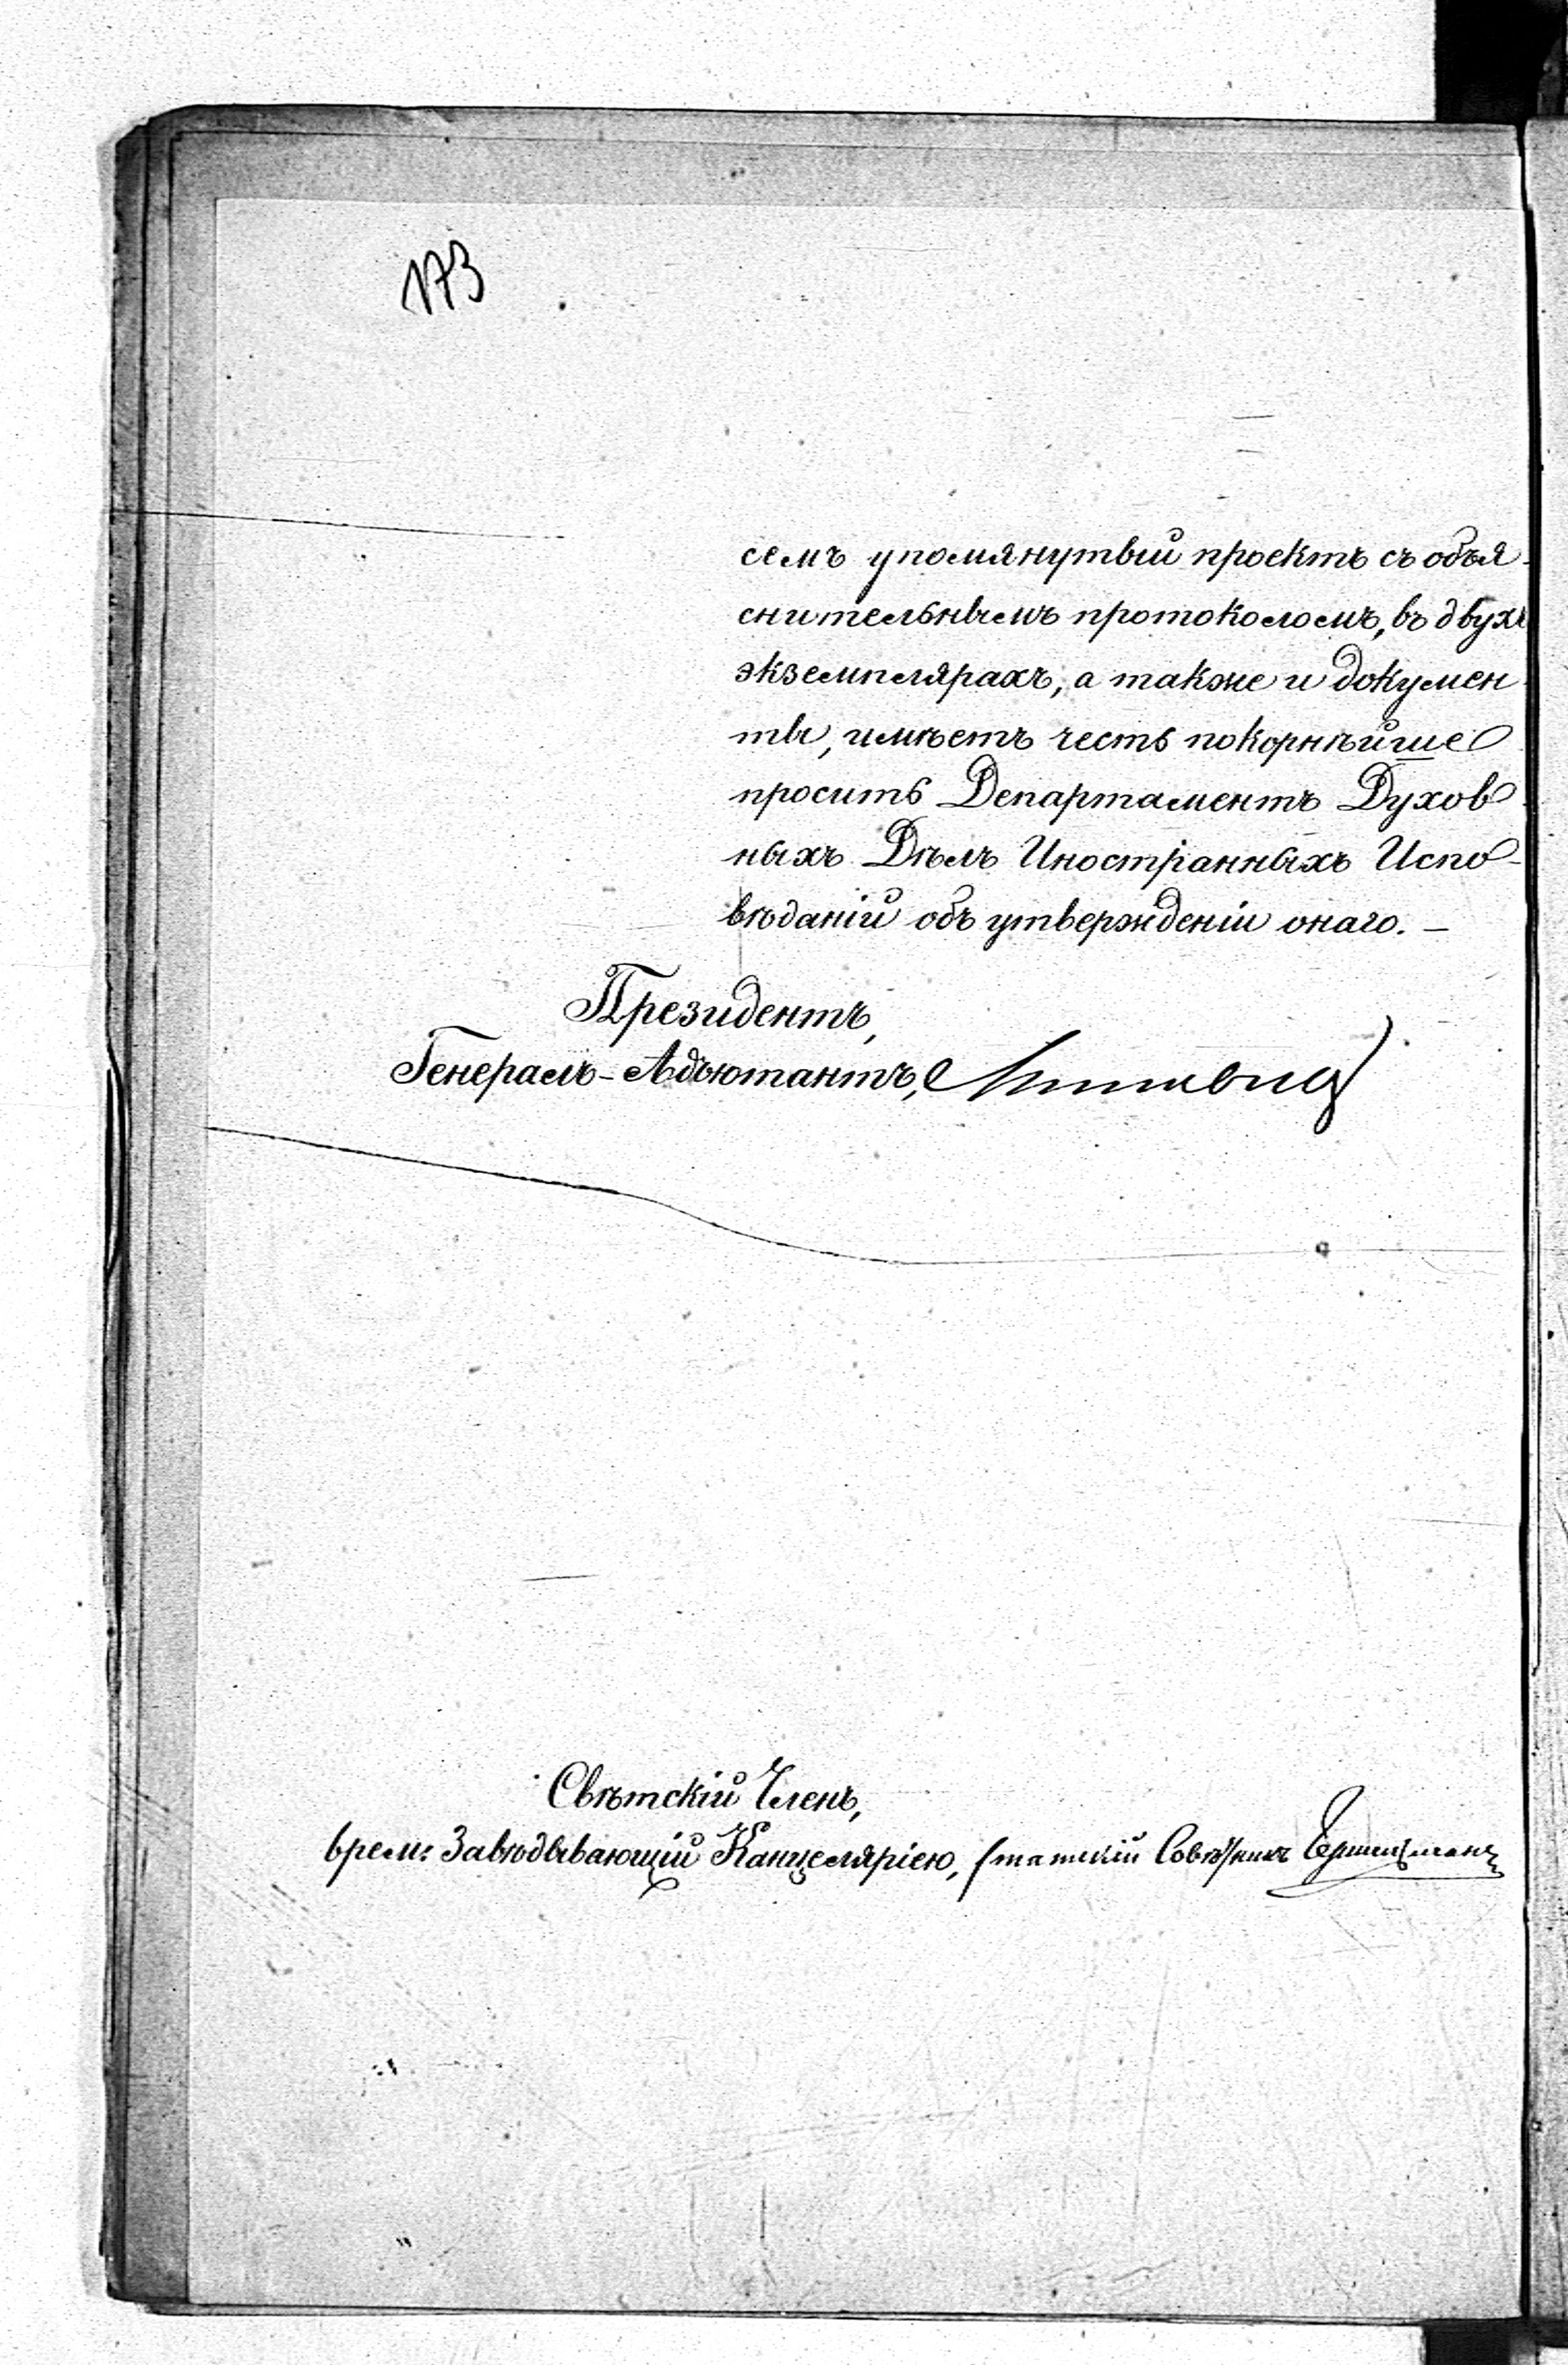 173
семъ упомянутый проектъ съ объя-
снительнымъ протоколомъ, въ двухъ
экземплярахъ, а также и докумен-
ты, имѣетъ честь покорнѣйше
просить Департаментъ Духов-
ныхъ Дѣлъ Иностранныхъ Испо-
вѣданій объ утвержденіи онаго. —
Президентъ,
Генералъ-Адъютантъ,
Свѣтскій Членъ,
врем: Завѣдывающій Канцеляріею, Статскій Совѣтникъ